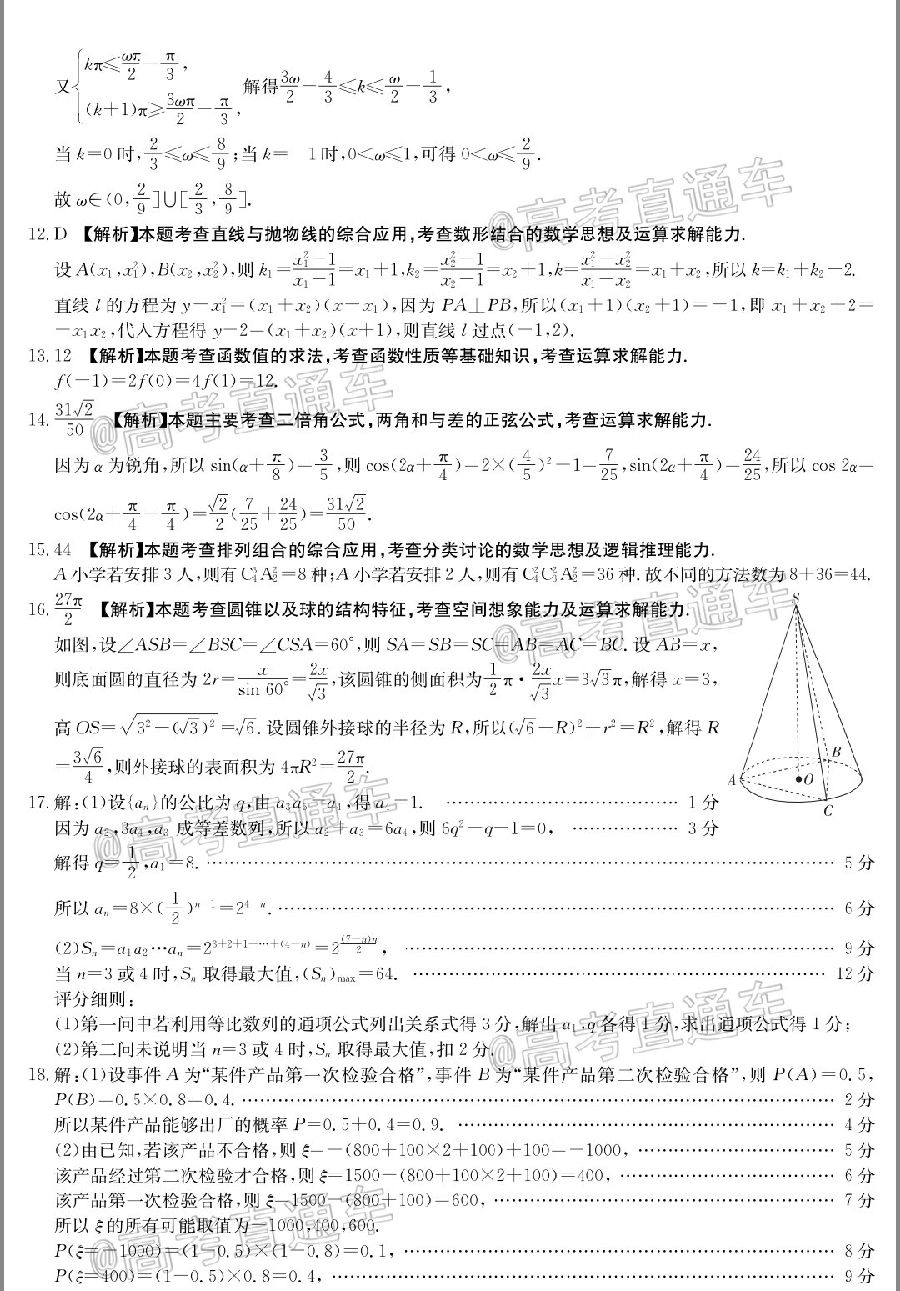 又{kπ≤ωπ/2−π/3, (k+1)π≥3ωπ/2−π/3, 解得3ω/2−4/3≤k≤ω/2−1/3,
当 k=0 时,2/3≤ω≤8/9;当 k= 1 时,0<ω≤1,可得 0<ω≤2/9.
故 ω∈(0,2/9]∪[2/3,8/9].
12. D 【解析】本题考查直线与抛物线的综合应用,考查数形结合的数学思想及运算求解能力.
设 A(x₁,x₁²),B(x₂,x₂²),则 k₁=(x₁²−1)/(x₁−1)=x₁+1,k₂=(x₂²−1)/(x₂−1)=x₂+1,k=(x₁²−x₂²)/(x₁−x₂)=x₁+x₂,所以 k=k₁+k₂−2.
直线 l 的方程为 y−x₁²=(x₁+x₂)(x−x₁),因为 PA⊥PB,所以(x₁+1)(x₂+1)=−1,即 x₁+x₂−2=
−x₁x₂,代入方程得 y−2=(x₁+x₂)(x+1),则直线 l 过点(−1,2).
13. 12 【解析】本题考查函数值的求法,考查函数性质等基础知识,考查运算求解能力.
f(−1)=2f(0)=4f(1)=12.
14. 31√2/50 【解析】本题主要考查二倍角公式,两角和与差的正弦公式,考查运算求解能力.
因为 α 为锐角,所以 sin(α+π/8)=3/5,则 cos(2α+π/4)=2×(4/5)²−1=7/25,sin(2α+π/4)=24/25,所以 cos 2α=
cos(2α+π/4−π/4)=√2/2(7/25+24/25)=31√2/50.
15. 44 【解析】本题考查排列组合的综合应用,考查分类讨论的数学思想及逻辑推理能力.
A 小学若安排 3 人,则有 C₄³A₂²=8 种;A 小学若安排 2 人,则有 C₄²C₃²A₂²=36 种. 故不同的方法数为 8+36=44.
16. 27π/2 【解析】本题考查圆锥以及球的结构特征,考查空间想象能力及运算求解能力.
如图,设∠ASB=∠BSC=∠CSA=60°,则 SA=SB=SC=AB=AC=BC. 设 AB=x,
则底面圆的直径为 2r=x/sin 60°=2x/√3,该圆锥的侧面积为1/2π·2x/√3x=3√3π,解得 x=3,
高 OS=√(3²−(√3)²)=√6. 设圆锥外接球的半径为 R,所以(√6−R)²−r²=R²,解得 R
=3√6/4,则外接球的表面积为 4πR²=27π/2.
S
A
B
O
C
17. 解:(1)设{aₙ}的公比为 q,由 a₃a₅=a₄,得a₄=1. …… 1 分
因为 a₂,3a₄,a₃ 成等差数列,所以 a₂+a₃=6a₄,则 6q²−q−1=0, …… 3 分
解得 q=1/2,a₁=8. …… 5 分
所以 aₙ=8×(1/2)ⁿ⁻¹=2⁴⁻ⁿ. …… 6 分
(2)Sₙ=a₁a₂⋯aₙ=2^(3+2+1+⋯+(4−n))=2^((7−n)n/2), …… 9 分
当 n=3 或 4 时,Sₙ 取得最大值,(Sₙ)max=64. …… 12 分
评分细则:
(1)第一问中若利用等比数列的通项公式列出关系式得 3 分,解出 a₁,q 各得 1 分,求出通项公式得 1 分;
(2)第二问未说明当 n=3 或 4 时,Sₙ 取得最大值,扣 2 分.
18. 解:(1)设事件 A 为“某件产品第一次检验合格”,事件 B 为“某件产品第二次检验合格”,则 P(A)=0.5,
P(B)=0.5×0.8=0.4. …… 2 分
所以某件产品能够出厂的概率 P=0.5+0.4=0.9. …… 4 分
(2)由已知,若该产品不合格,则 ξ=−(800+100×2+100)+100=−1000, …… 5 分
该产品经过第二次检验才合格,则 ξ=1500−(800+100×2+100)=400, …… 6 分
该产品第一次检验合格,则 ξ=1500−(800+100)=600, …… 7 分
所以 ξ 的所有可能取值为−1000,400,600.
P(ξ=−1000)=(1−0.5)×(1−0.8)=0.1, …… 8 分
P(ξ=400)=(1−0.5)×0.8=0.4, …… 9 分
@高考直通车
@高考直通车
@高考直通车
@高考直通车
@高考直通车
@高考直通车